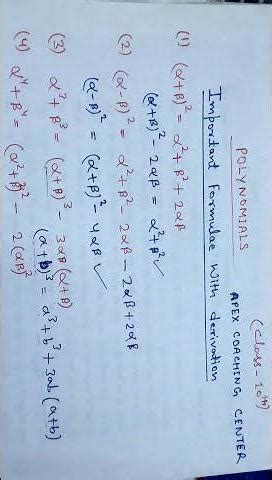 (Class-10th)
POLYNOMIALS APEX COACHING CENTER
Important Formulae With derivation
(1) (α+β)² = α²+β²+2αβ
(α+β)²-2αβ = α²+β² ✓
(2) (α-β)² = α²+β²-2αβ-2αβ+2αβ
(α-β)² = (α+β)²-4αβ ✓
(3) α³+β³ = (α+β)³-3αβ(α+β)
(a+b)³ = a³+b³+3ab(a+b)
(4) α⁴+β⁴ = (α²+β²)²-2(αβ)²